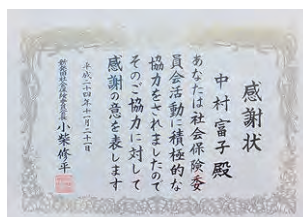 感謝状
中村富子殿
あなたは社会保険委
員会活動に積極的な
協力をされましたので
そのご協力に対して
感謝の意を表します
平成二十四年十一月二十一日
新発田社会保険委員会会長 小柴修平